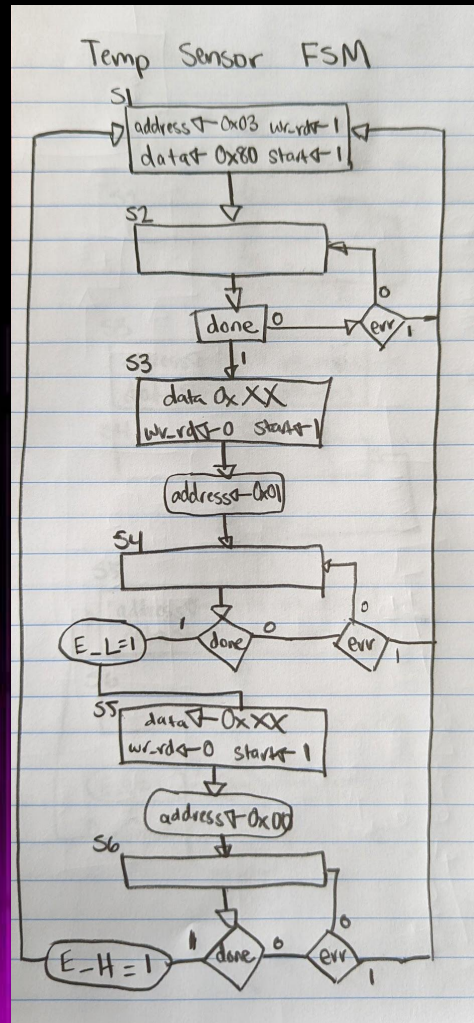 Temp Sensor FSM
S1
address ← 0x03 wr_rd ← 1
data ← 0x80 start ← 1
S2
0
done 0 err 1
1
S3
data 0x XX
wr_rd ← 0 start ← 1
address ← 0x01
S4
0
E_L=1 1 done 0 err 1
S5
data ← 0xXX
wr_rd ← 0 start ← 1
address ← 0x00
S6
0
E_H=1 1 done 0 err 1